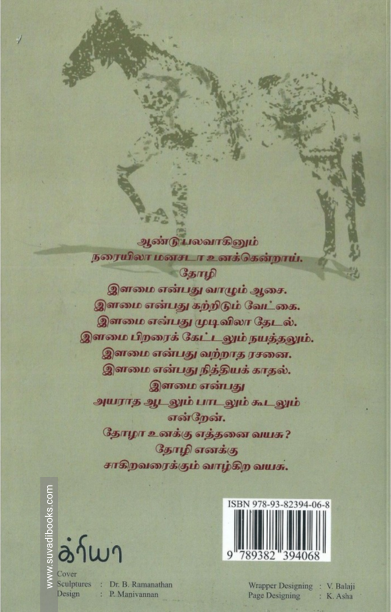 ஆண்டு பலவாகினும்
நரையிலா மனசடா உனக்கென்றாய்.
தோழி
இளமை என்பது வாழும் ஆசை.
இளமை என்பது கற்றிடும் வேட்கை.
இளமை என்பது முடிவிலா தேடல்.
இளமை பிறரைக் கேட்டலும் நயத்தலும்.
இளமை என்பது வற்றாத ரசனை.
இளமை என்பது நித்தியக் காதல்.
இளமை என்பது
அயராத ஆடலும் பாடலும் கூடலும்
என்றேன்.
தோழா உனக்கு எத்தனை வயசு?
தோழி எனக்கு
சாகிறவரைக்கும் வாழ்கிற வயசு.
ISBN 978-93-82394-06-8
9 789382 394068
க்ரியா
www.suvadibooks.com
Cover
Sculptures : Dr. B. Ramanathan
Design : P. Manivannan
Wrapper Designing : V. Balaji
Page Designing : K. Asha